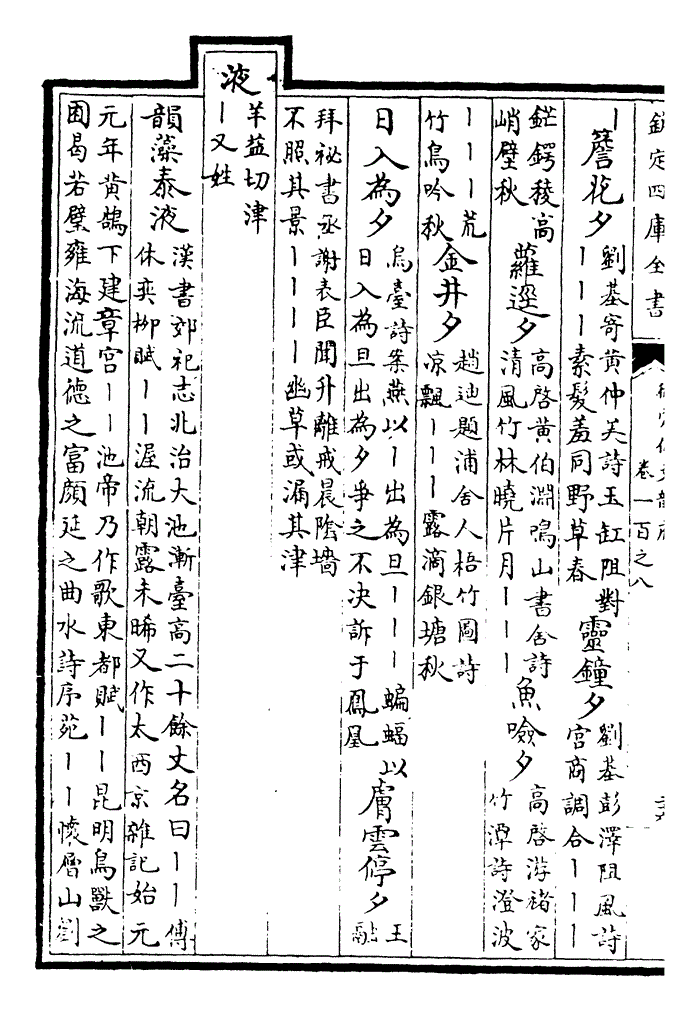 欽定四庫全書
卷一百之八
｜簷花夕劉基寄黄仲美詩玉缸阻對｜｜｜素髮羞同野草春靈鐘夕劉基彭澤阻風詩宫商調合｜｜｜
鋩鍔稜高峭壁秋蘿逕夕高啓黄伯淵鳴山書舍詩清風竹林曉片月｜｜｜魚噞夕高啓游禇家竹潭詩澄波
｜｜｜荒竹鳥吟秋金井夕趙迪題浦舍人梧竹圖詩凉飄｜｜｜露滴銀塘秋
日入為夕烏臺詩案燕以｜出為旦｜｜｜蝙蝠以日入為旦出為夕爭之不决訴于鳳凰膚雲停夕王融
拜祕書丞謝表臣聞升離戒晨陰墻不照其景｜｜｜｜幽草或漏其津
液羊益切津｜又姓
韻藻泰液漢書郊祀志北治大池漸臺高二十餘丈名曰｜｜傅休奕栁賦｜｜渥流朝露未晞又作太西京雜記始元
元年黄鵠下建章宫｜｜池帝乃作歌東都賦｜｜昆明鳥獸之囿曷若璧雍海流道德之富顔延之曲水詩序苑｜｜懷曾山劉